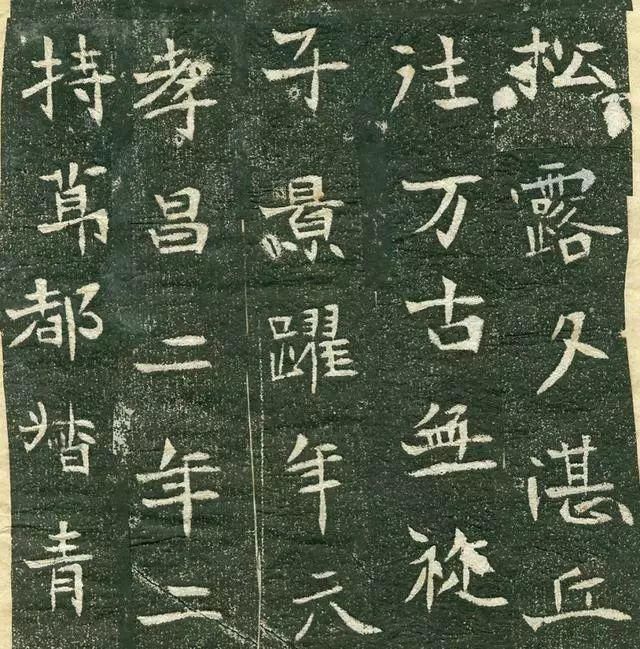 松露夕湛丘
注万古無從
子景躍年六
孝昌二年二
持節都督青